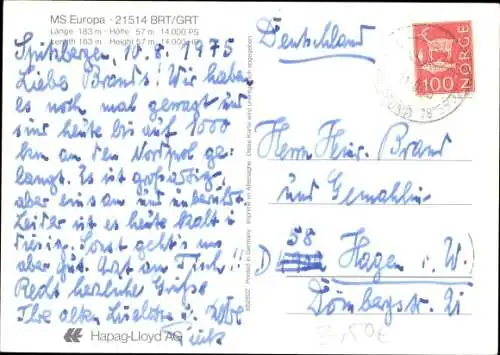 MS Europa · 21514 BRT/GRT
Länge 183 m · Höhe 57 m 14 000 PS
Length 183 m · Height 57 m 14 000
Spitzbergen, 10.8.1975
Liebe Brands! Wir haben
es noch mal gewagt und
sind heute bis auf 1000
km an den Nordpol ge-
langt. Es ist großartig,
aber einsam und unberührt.
Leider ist es heute kalt u.
diesig. Sonst geht's uns
aber gut. Arzt am Tisch!!
Recht herzliche Grüße
Ihre alten Liselotte u.
Hapag-Lloyd AG
Printed in Germany
Deutschland
100 NORGE
Herrn Heinr. Brand
und Gemahlin
D 58 Hagen i. W.
Dömbergstr. 21
3,50€